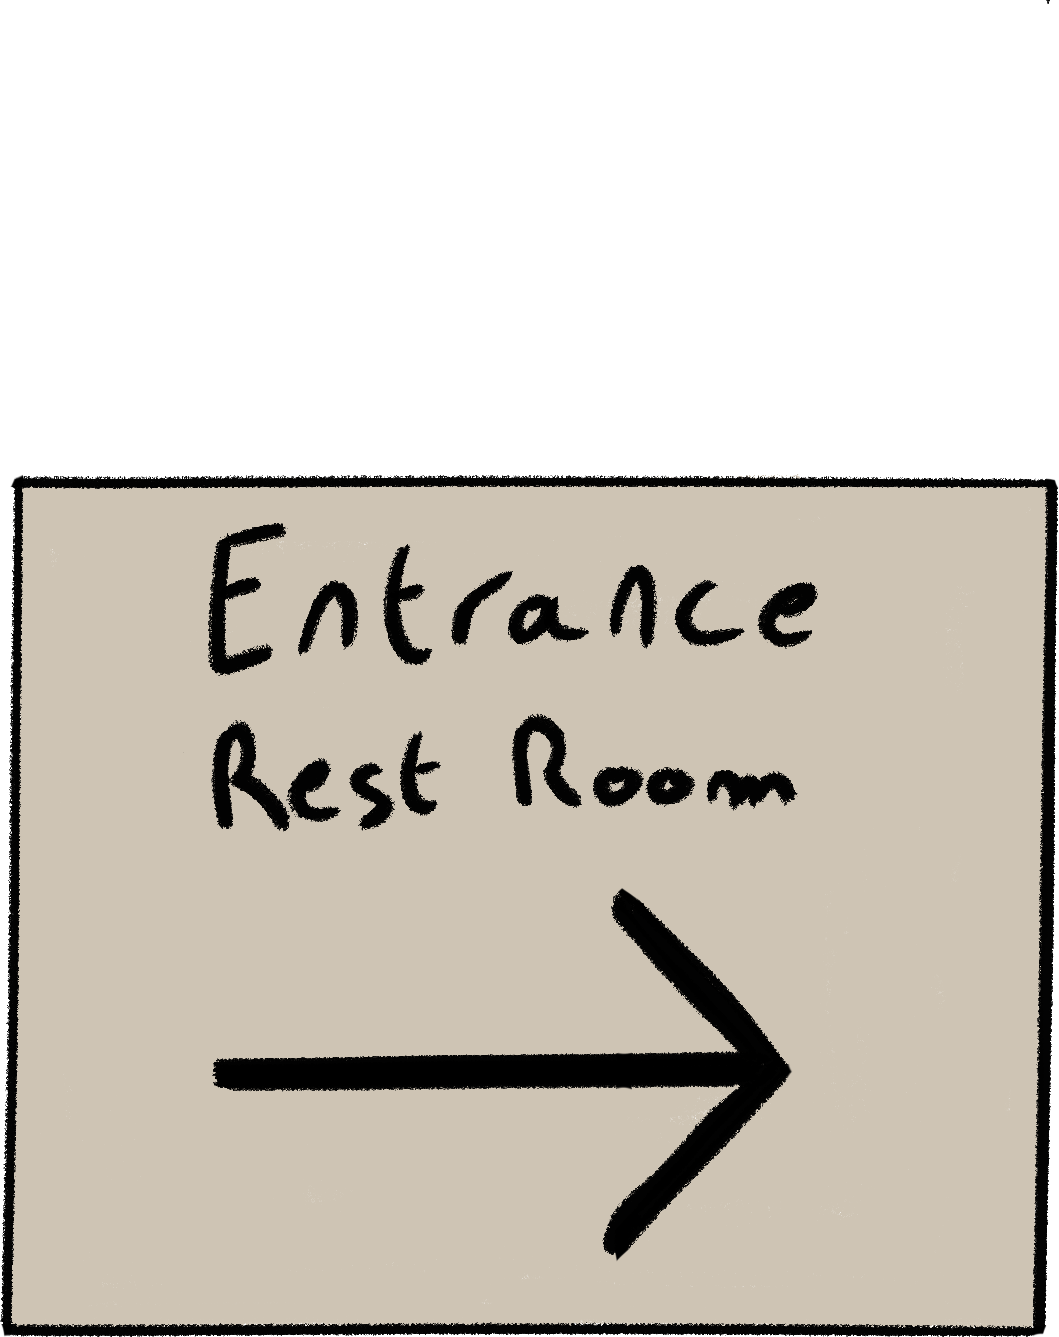 Entrance
Rest Room